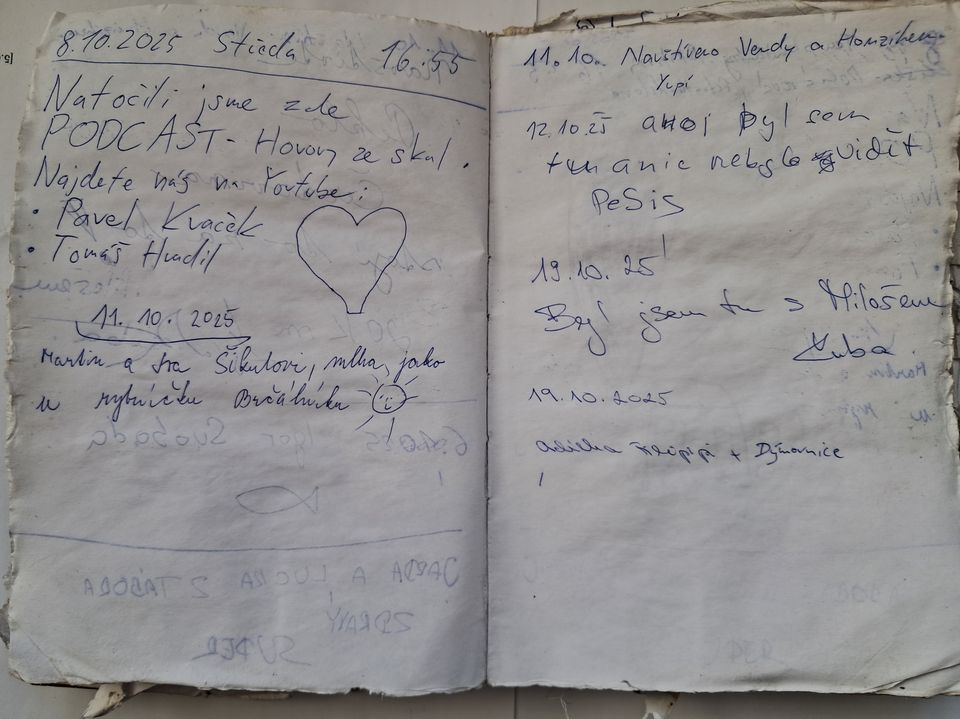 8.10.2025 Středa 16:55
Natočili jsme zde
PODCAST - Hovory ze skal.
Najdete nás na Youtube:
• Pavel Kvaček
• Tomáš Hudil
11.10.2025
Martin a Iva Šikulovi, mlha, jako
u rybníčku Brčálníku
11.10. Navštíveno Vendy a Honzíkem
Yupí
12.10.25 ahoj byl sem
tu a nic nebylo vidět
PeSiS
19.10.25
Byl jsem tu s Milošem
Kuba
19.10.2025
+ Dýmovnice
JARDA A LUCKA Z TÁBORA
ZDRAVÝ
SUPER
Igor Svoboda